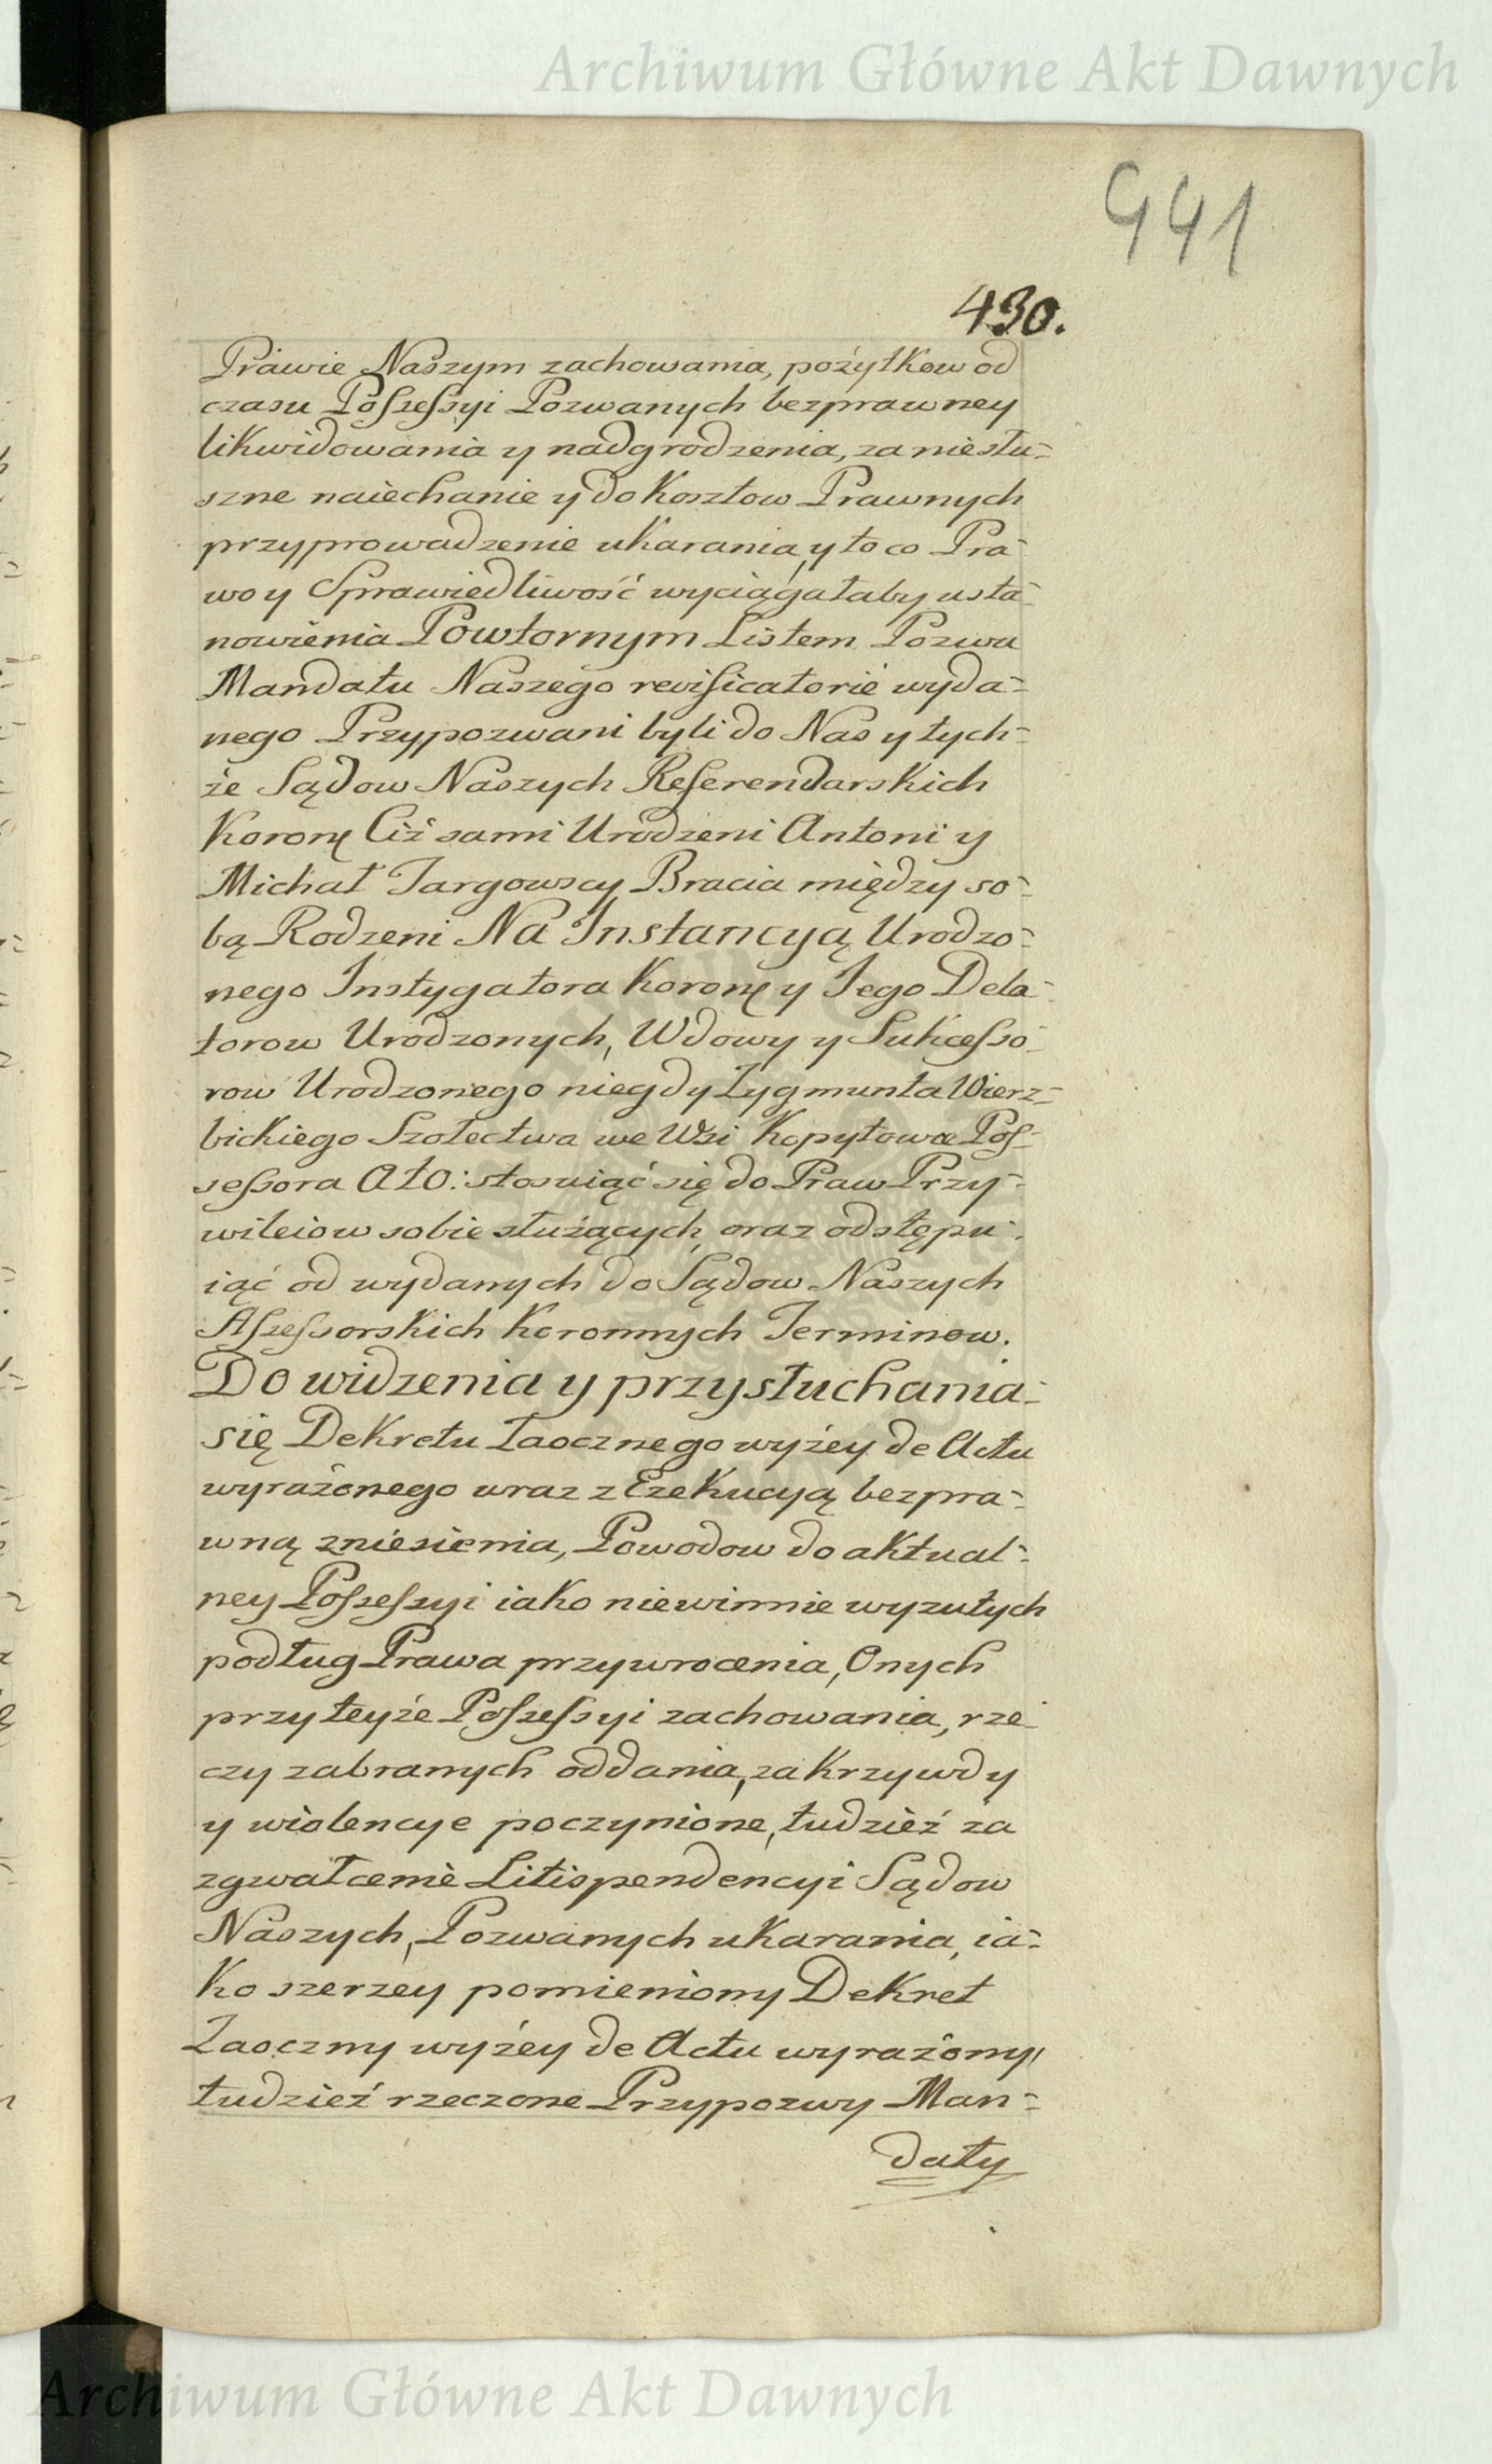 Archiwum Główne Akt Dawnych
441
430.
Prawie Naszym zachowania, pożytkow od
czasu Possessyi Pozwanych bezprawney
likwidowania y nadgrodzenia, za niesłu-
szne naiechanie y do Kosztow Prawnych
przyprowadzenie ukarania, y to co Pra-
wo y Sprawiedliwość wyciągałaby usta-
nowienia Powtornym Listem Pozwu
Mandatu Naszego revificatorie wyda-
nego Przypozwani byli do Nas y tych-
że Sądow Naszych Referendarskich
Koronę Ciż sami Urodzeni Antoni y
Michał Targowscy Bracia między so-
bą Rodzeni Na Instancyą Urodzo-
nego Instygatora Koronę y Jego Dela-
torow Urodzonych, Wdowy y Sukcesso-
row Urodzonego niegdy Zygmunta Wierz-
bickiego Szołectwa we Wsi Kopytowce Pos-
sessora AtO: stosuiąć się do Praw Przy-
wileiow sobie służących, oraz odstępu-
iąć od wydanych do Sądow Naszych
Assessorskich Koronnych Terminow.
Do widzenia y przysłuchania-
się Dekretu Zaocznego wyżey de Actu
wyrażonego wraz z Exekucyą bezpra-
wną zniesienia, Powodow do aktual-
ney Possessyi iako niewinnie wyzutych
podług Prawa przywrocenia, Onych
przy teyże Possessyi zachowania, rze-
czy zabranych oddania, za Krzywdy
y wiolencye poczynione, tudzież za
zgwałcenie Litispendencyi Sądow
Naszych, Pozwanych ukarania, ia-
ko szerzey pomieniony Dekret
Zaoczny wyżey de Actu wyrażony,
tudzież rzeczone Przypozwy Man-
daty
Archiwum Główne Akt Dawnych